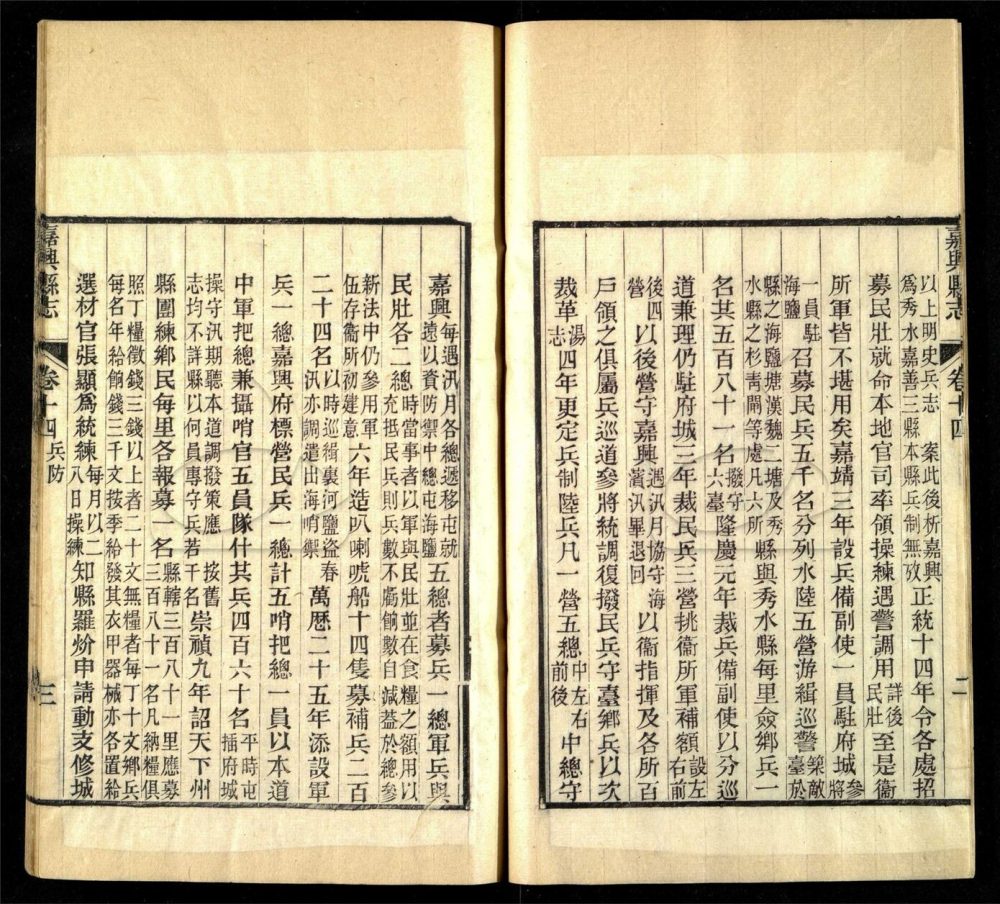 嘉興縣志
卷十四
二
以上明史兵志　案此後析嘉興
爲秀水嘉善三縣本縣兵制無攷
正統十四年令各處招
募民壯就命本地官司率領操練遇警調用
詳後
民壯
至是衞
所軍皆不堪用矣嘉靖三年設兵備副使一員駐府城
參將
一員駐
海鹽
召募民兵五千名分列水陸五營游緝巡警
築敵
臺於
縣之海鹽塘漢魏二塘及秀
水縣之杉青閘等處凡六所
縣與秀水縣每里僉鄉兵一
名其五百八十一名
撥守
六臺
隆慶元年裁兵備副使以分巡
道兼理仍駐府城三年裁民兵三營挑衞所軍補額
設左
右前
後四
營
以後營守嘉興
遇汛月協守海
濱汛畢退回
以衞指揮及各所百
戶領之俱屬兵巡道參將統調復撥民兵守臺鄉兵以次
裁革
湯
志
四年更定兵制陸兵凡一營五總
中左右
前後
中總守
嘉興
每遇汛月各總遞移屯就
遠以資防禦中總屯海鹽
五總者募兵一總軍兵與
民壯各二總
時當事者以軍與民壯並在食糧之額用以
充抵民兵則兵數不虧餉數自減葢於總參
新法中仍參用軍
伍存衞所初建意
六年造叭喇唬船十四隻募補兵二百
二十四名
以時巡緝裏河鹽盜春
汛亦調遣出海哨禦
萬厯二十五年添設軍
兵一總嘉興府標營民兵一總計五哨把總一員以本道
中軍把總兼攝哨官五員隊什其兵四百六十名
平時屯
插府城
操守汛期聽本道調撥策應　按舊
志均不詳縣以何員專守兵若干名
崇禎九年詔天下州
縣團練鄉民每里各報募一名
縣轄三百八十一里應募
三百八十一名凡納糧俱
照丁糧徵錢三錢以上者二十文無糧者每丁十文鄉兵
每名年給餉錢三千文按季給發其衣甲器械亦各置給
選材官張顯爲統練
每月以二
八日操練
知縣羅炌申請動支修城
嘉興縣志
卷十四
兵防
三